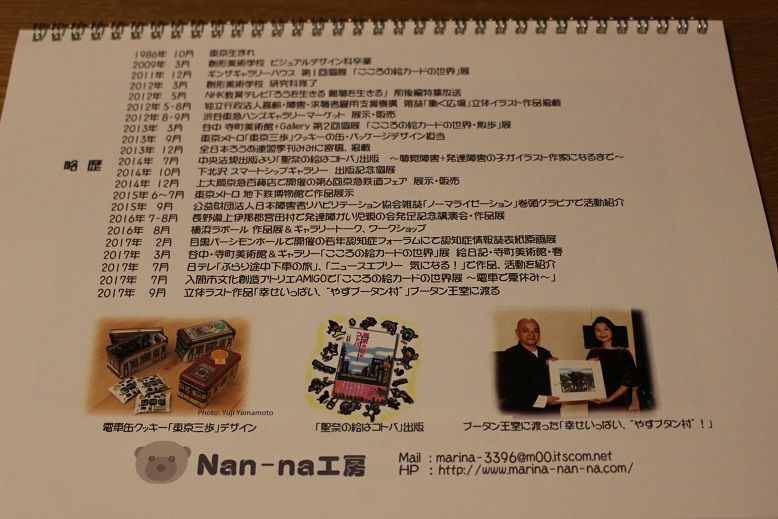 略歴
1986年 10月 東京生まれ
2009年 3月 創形美術学校 ビジュアルデザイン科卒業
2011年 12月 ギンザギャラリーハウス 第1回個展「こころの絵カードの世界」展
2012年 3月 創形美術学校 研究科修了
2012年 5月 NHK教育テレビ「ろうを生きる 難聴を生きる」 前後編特集放送
2012年 5-8月 独立行政法人高齢・障害・求職者雇用支援機構 雑誌「働く広場」立体イラスト作品掲載
2012年 8-9月 渋谷東急ハンズギャラリーマーケット 展示・販売
2013年 3月 谷中 寺町美術館+Gallery 第2回個展「こころの絵カードの世界・散歩」展
2013年 9月 東京メトロ「東京三歩」クッキーの缶・パッケージデザイン担当
2013年 12月 全日本ろうあ連盟季刊みみに寄稿、掲載
2014年 7月 中央法規出版より「聖奈の絵はコトバ」出版 ～聴覚障害+発達障害の子がイラスト作家になるまで～
2014年 10月 下北沢 スマートシップギャラリー 出版記念個展
2014年 12月 上大岡京急百貨店で開催の第6回京急鉄道フェア 展示・販売
2015年 6～7月 東京メトロ 地下鉄博物館で作品展示
2015年 9月 公益財団法人日本障害者リハビリテーション協会雑誌「ノーマライゼーション」巻頭グラビアで活動紹介
2016年 7-8月 長野県上伊那郡宮田村で発達障がい児親の会発足記念講演会・作品展
2016年 8月 横浜ラポール 作品展&ギャラリートーク、ワークショップ
2017年 2月 目黒パーシモンホールで開催の若年認知症フォーラムにて認知症情報誌表紙原画展
2017年 3月 谷中・寺町美術館&ギャラリー「こころの絵カードの世界」展 絵日記・寺町美術館・春
2017年 7月 日テレ「ぶらり途中下車の旅」、「ニュースエブリー 気になる!」で作品、活動を紹介
2017年 7月 入間市文化創造アトリエAMIGOで「こころの絵カードの世界展 ～電車で夏休み～」
2017年 9月 立体イラスト作品「幸せいっぱい、"やすブータン村"」ブータン王室に渡る
Photo: Yuji Yamamoto
電車缶クッキー「東京三歩」デザイン
「聖奈の絵はコトバ」出版
ブータン王室に渡った「幸せいっぱい、"やすブタン村"!」
Nan-na工房
Mail : marina-3396@m00.itscom.net
HP : http://www.marina-nan-na.com/